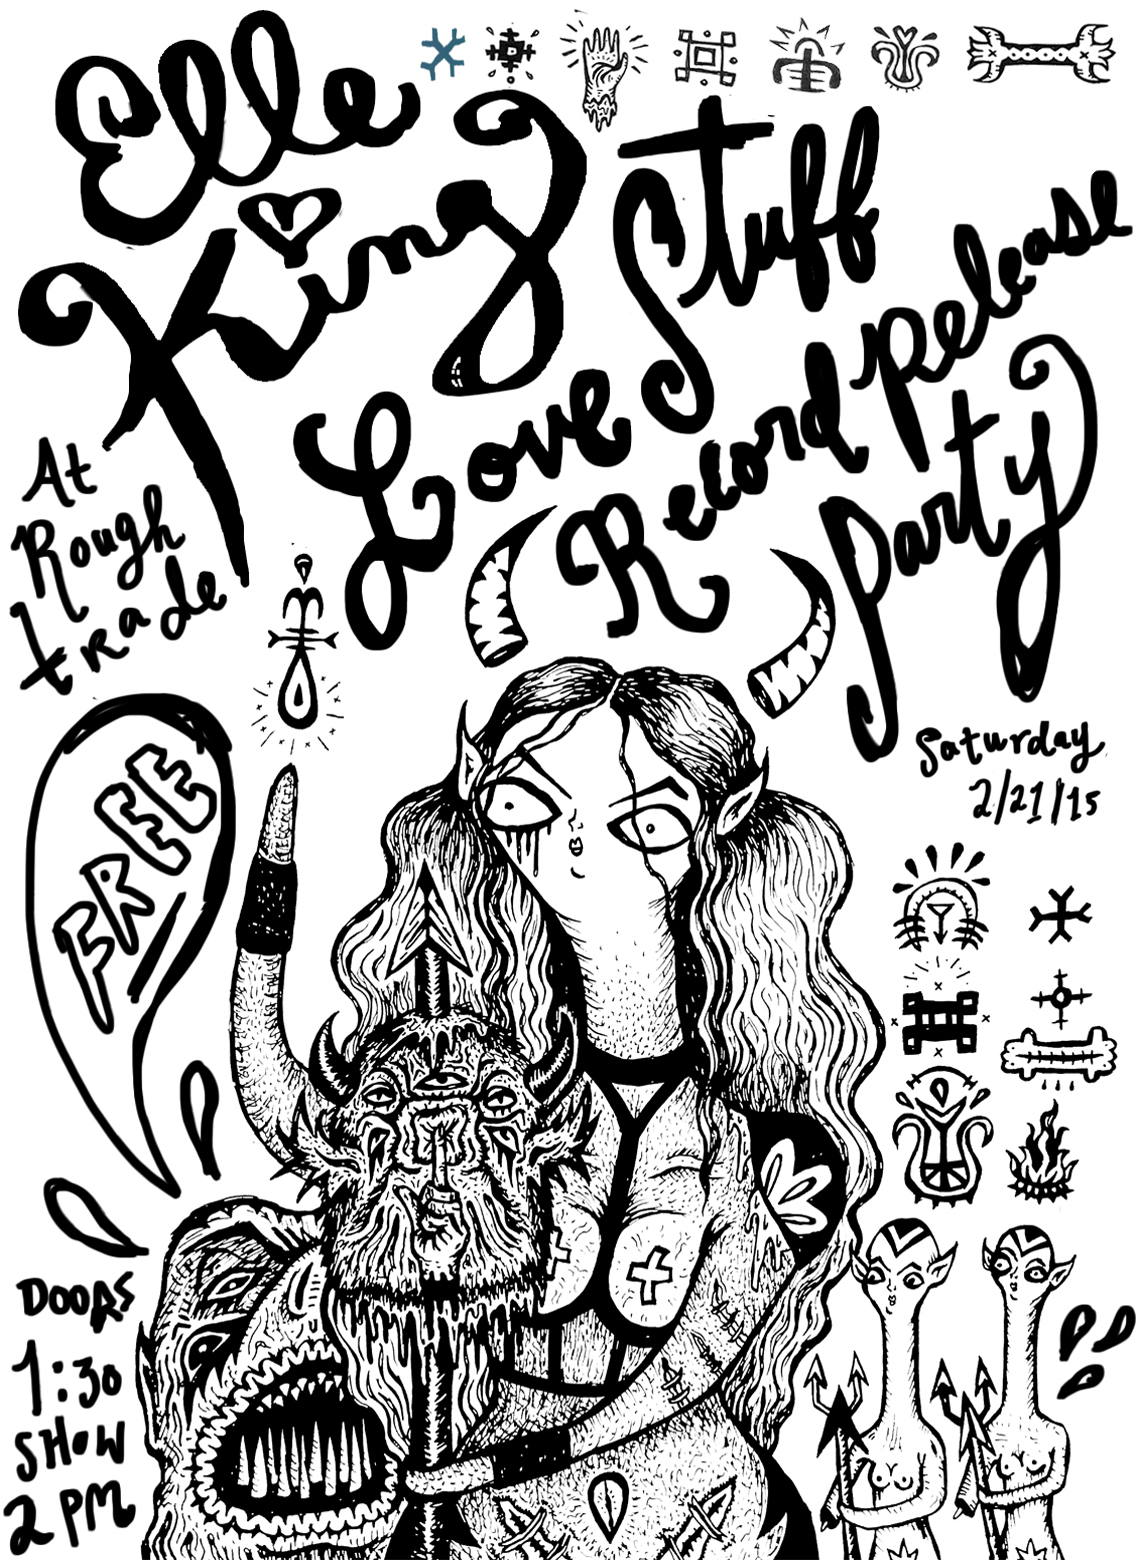 Elle
King
Love Stuff
Record Release
Party
At
Rough
trade
FREE
Saturday
2/21/15
DOORS
1:30
SHOW
2 PM